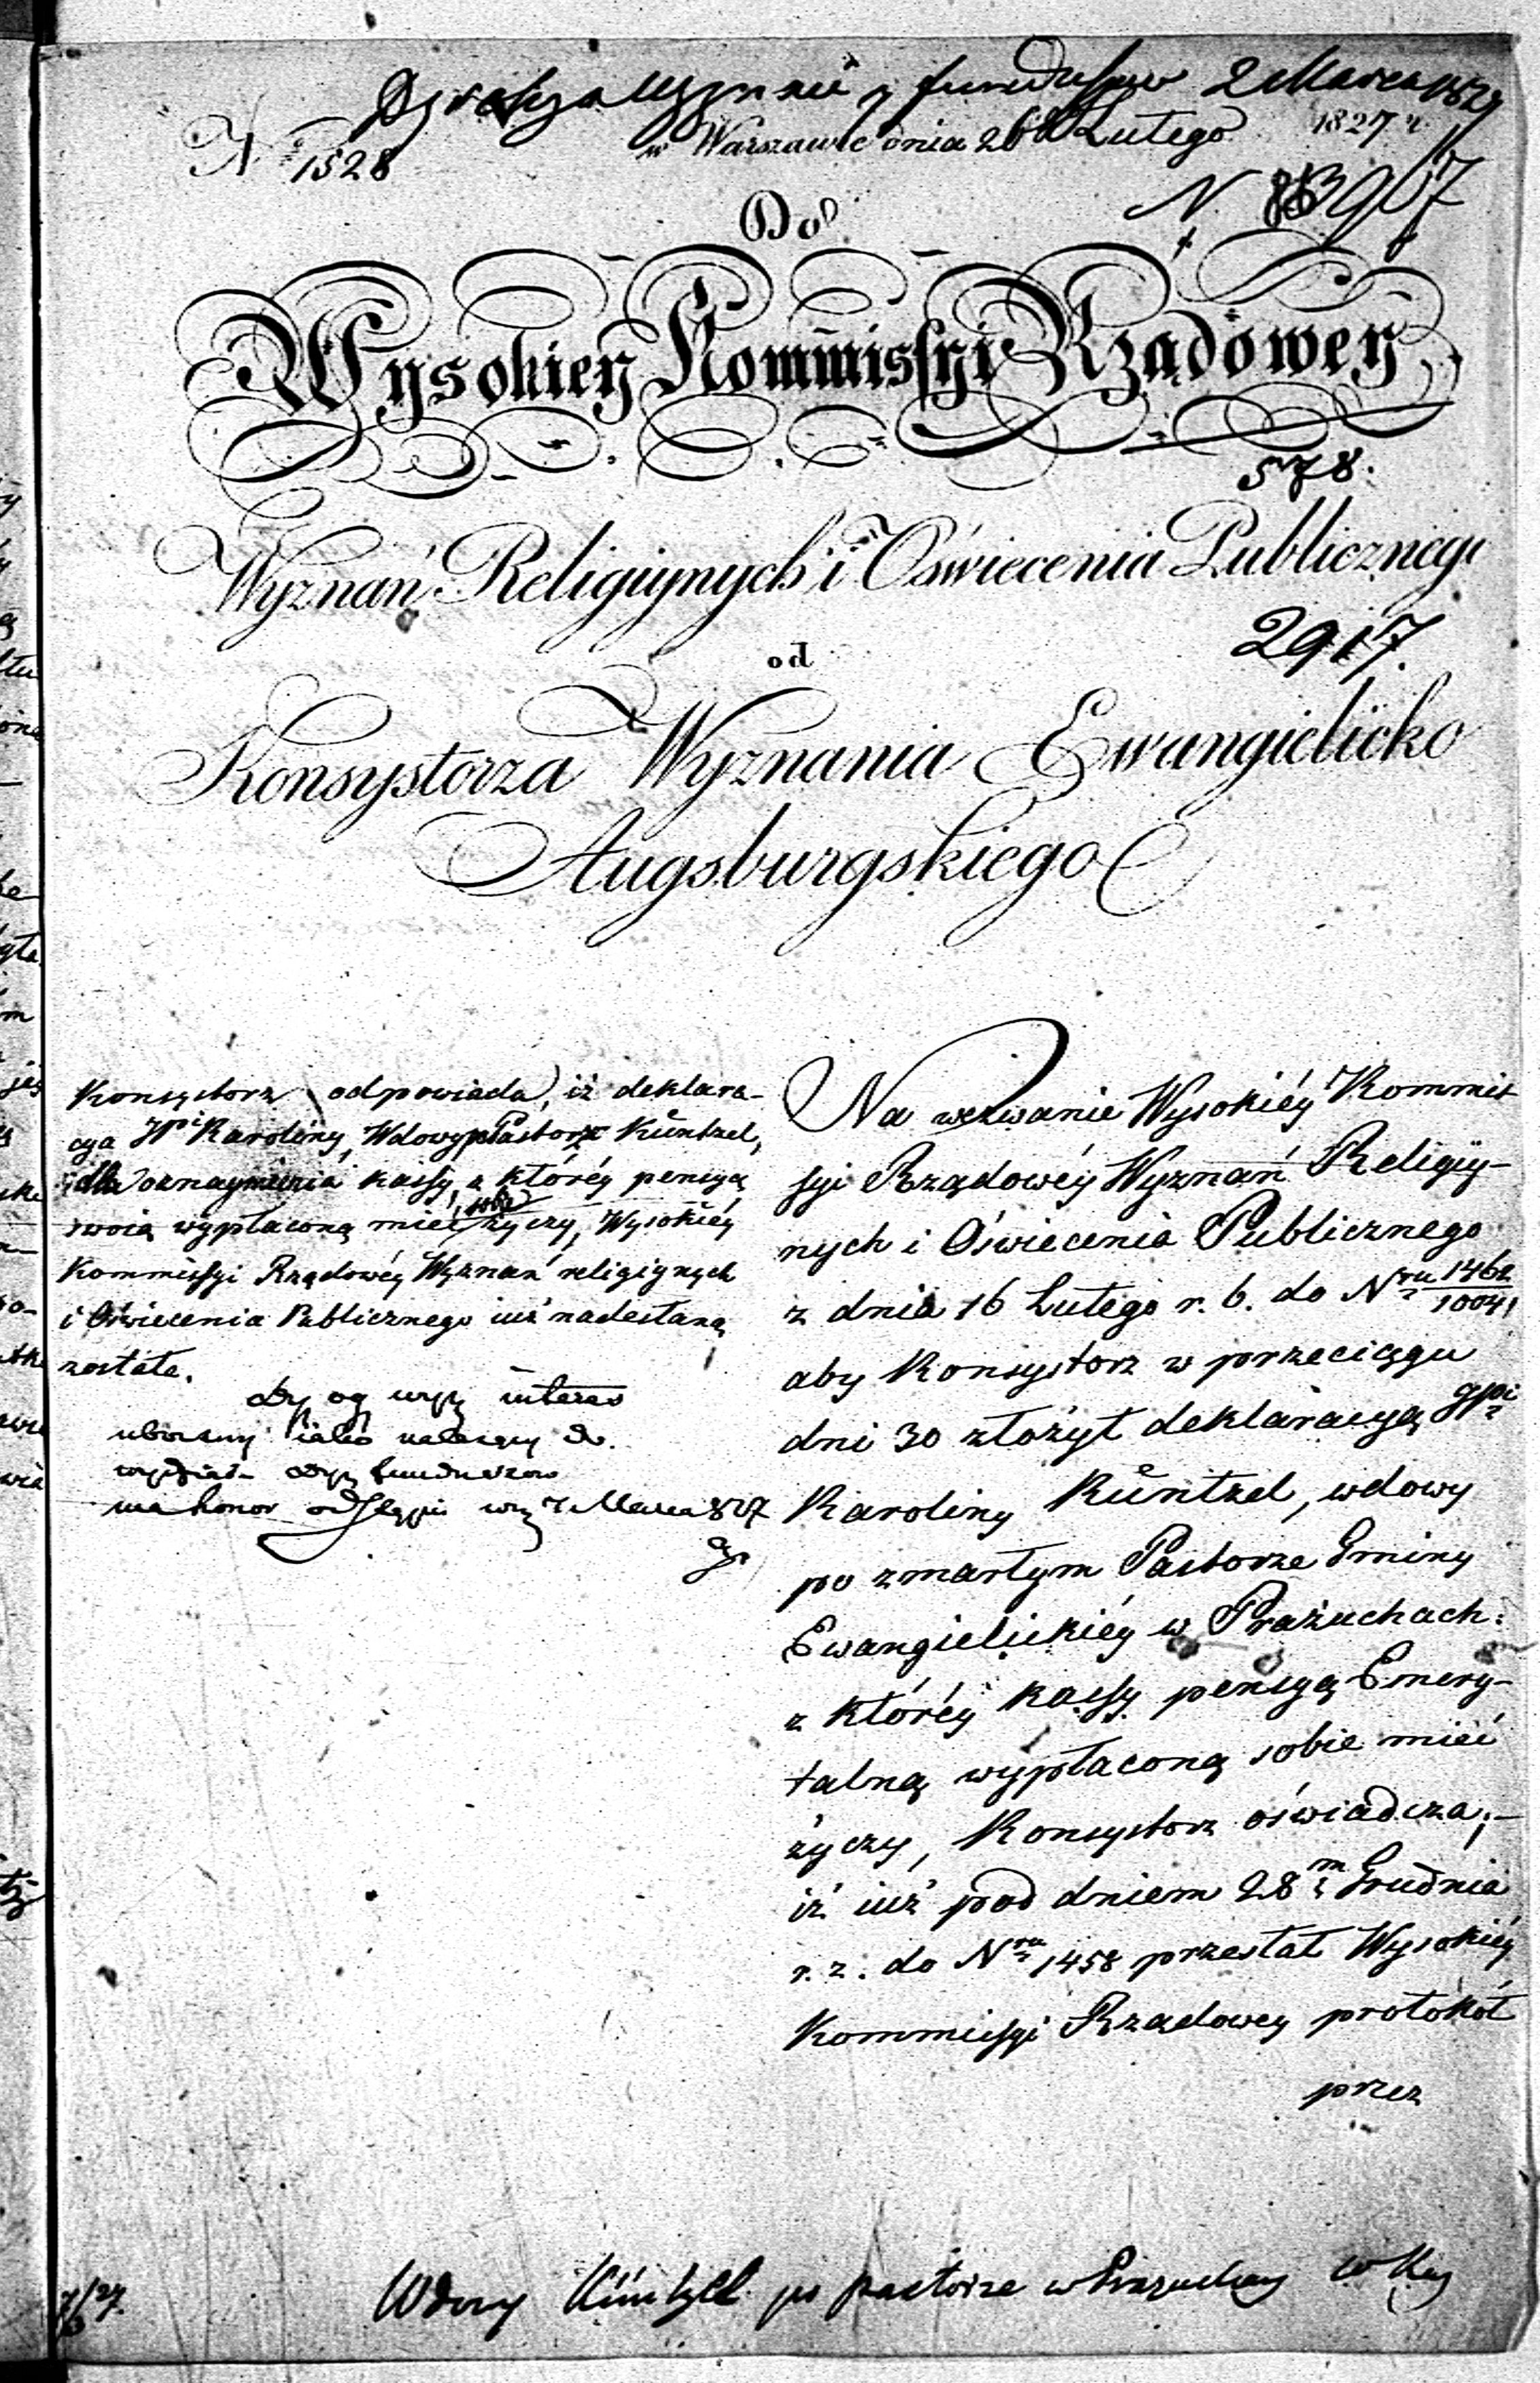 Dyrekcya Wyznań z funduszów 2 Marca 1827
w Warszawie dnia 26 Lutego 1827 r.
N 1528
N. 3907
Do
Wysokiey Kommissyi Rządowey
578.
Wyznań Religiynych i Oświecenia Publicznego
2917.
od
Konsystorza Wyznania Ewangielicko
Augsburgskiego
Konsystorz odpowiada, iż deklara-
cya Karoliny, Wdowy Pastorze Küntzel,
dla oznaymienia kassy z któréy pensyą
swoią wypłaconą mieć sobie życzy, Wysokiéy
Kommissyi Rządowéy Wyznań religiynych
i Oświecenia Publicznego iuż nadesłaną
została.
interes
iako należący do
funduszów
ma honor 7 Marca 827
Na wezwanie Wysokiéy Kommis
syi Rządowéy Wyznań Religiy-
nych i Oświecenia Publicznego
z dnia 16 Lutego r. b. do Nru 1462/10041
aby Konsystorz w przeciągu
dni 30 złożył deklaracyą
Karoliny Küntzel, wdowy
po zmarłym Pastorze Gminy
Ewangielickiéy w Prażuchach:
z któréy kassy pensyą Emery-
talną wypłaconą sobie mieć
życzy, Konsystorz oświadcza,-
iż iuż pod dniem 28m Grudnia
r. z. do Nru 1458 przesłał Wysokiéy
Kommissyi Rządowey protokół
przez
Wdowy Küntzel po pastorze w Prazuchach